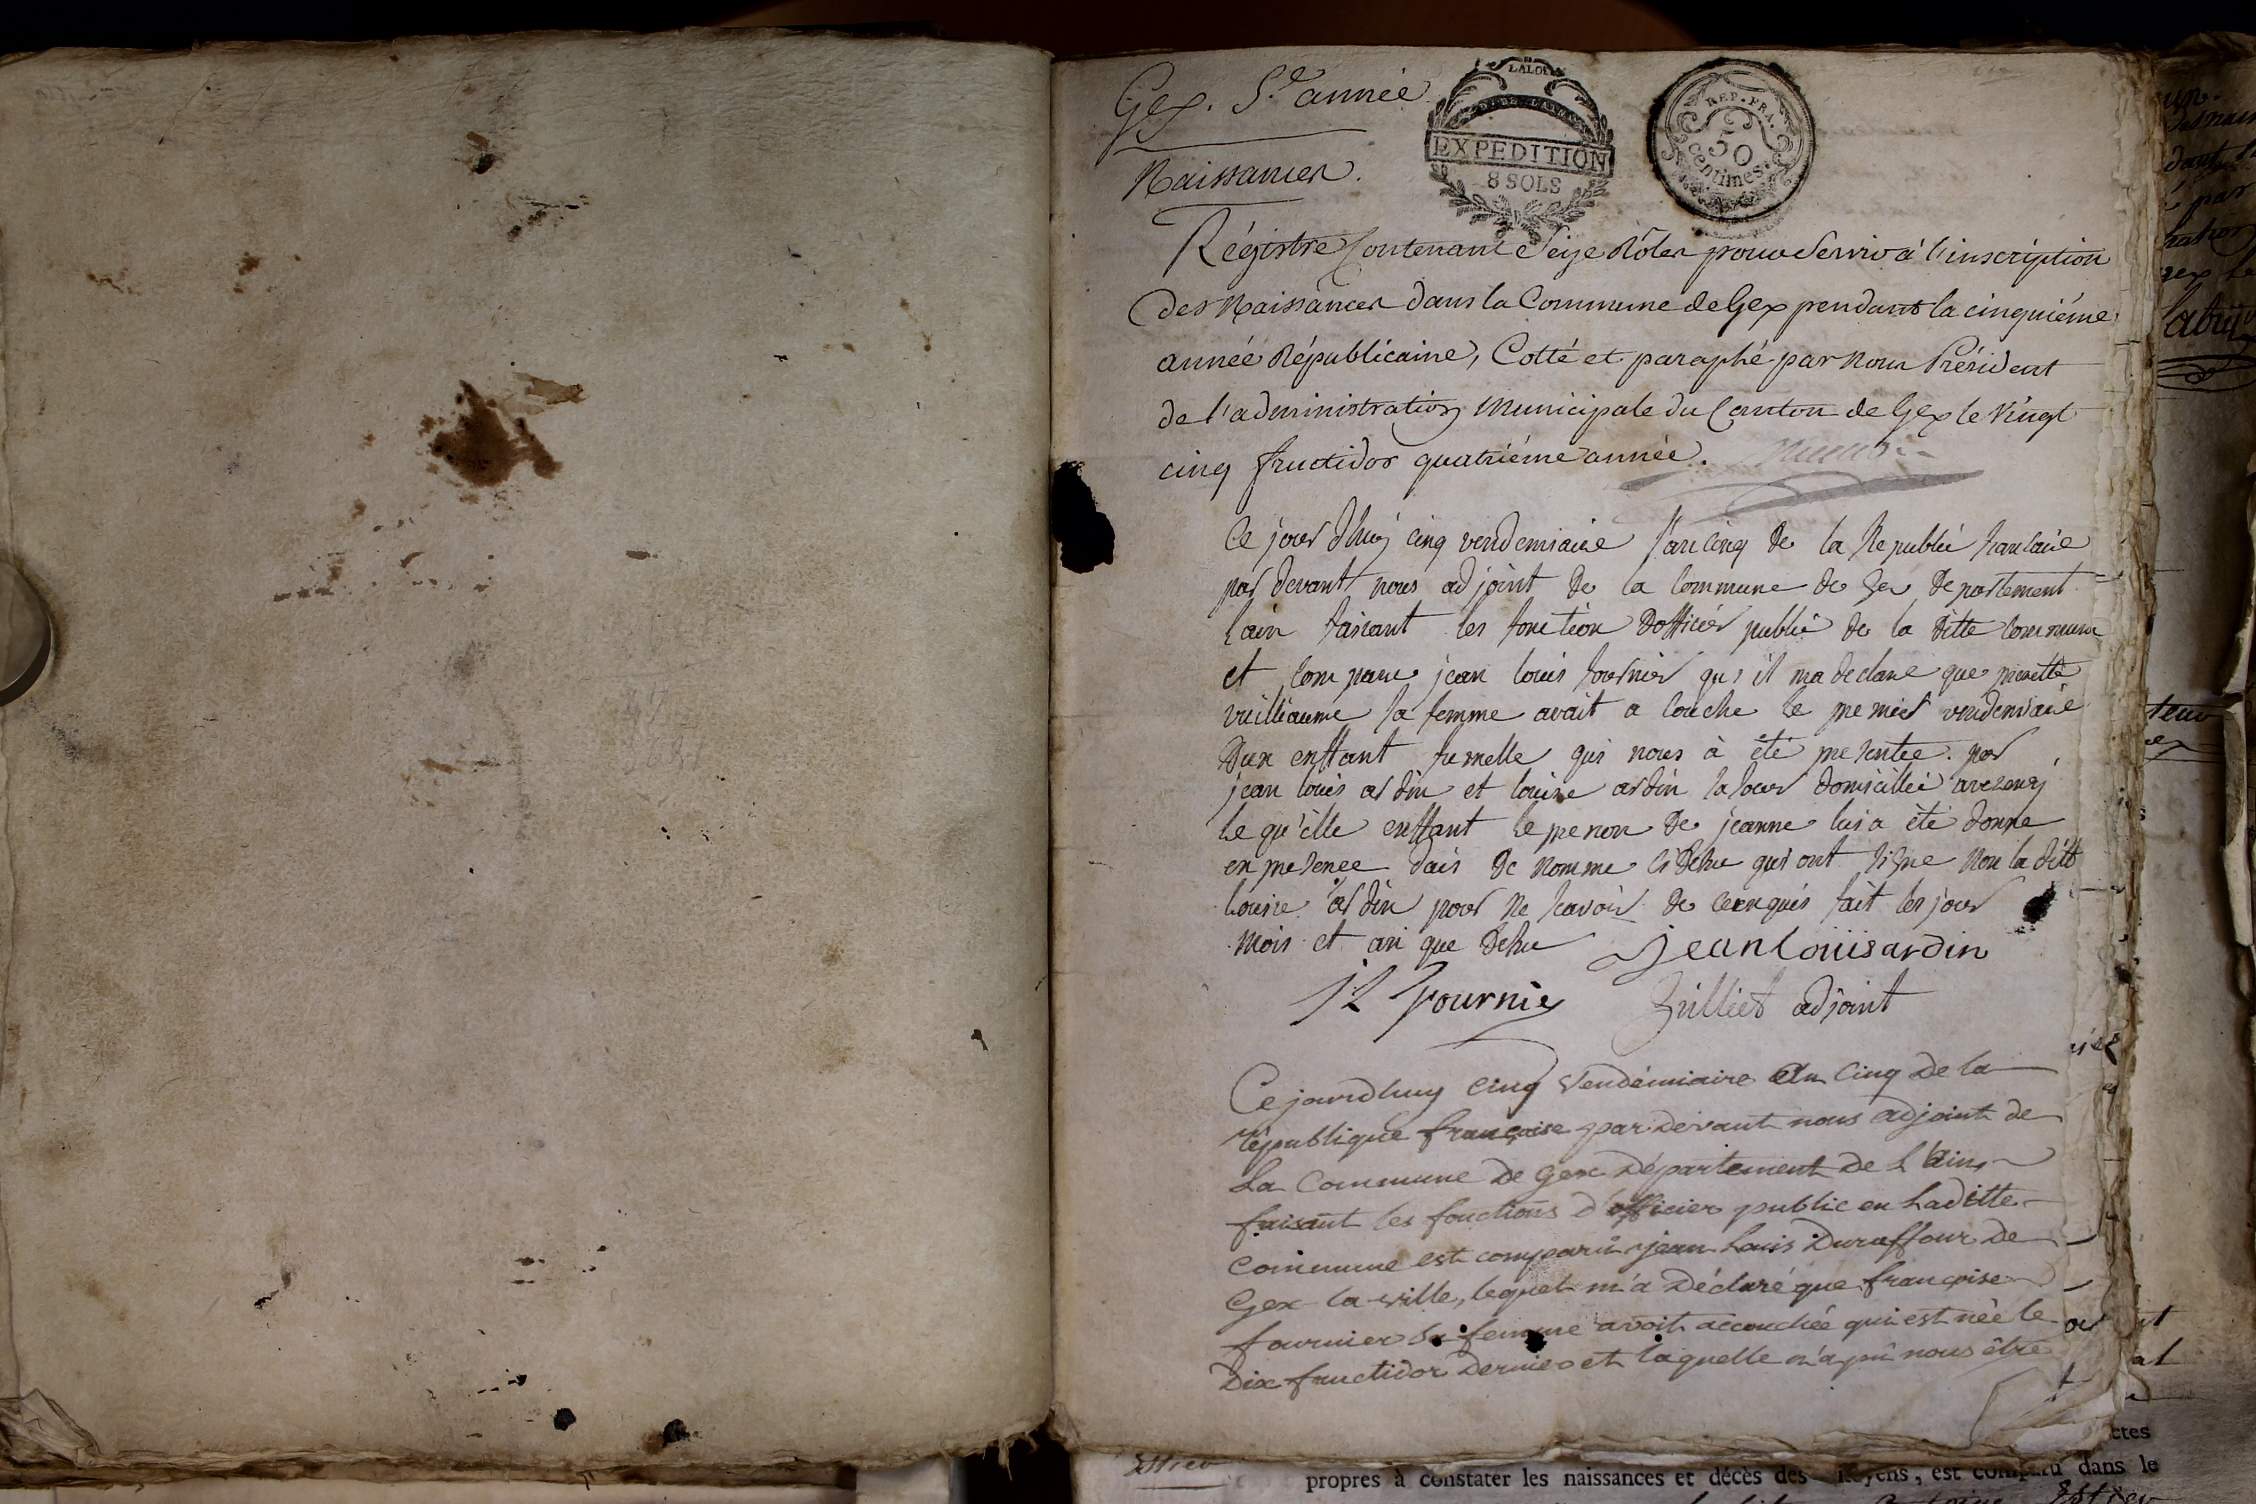 Gex. 5.e année
Naissances.
LALOI
EXPEDITION
8 SOLS
REP. FRA.
50
centimes
Régistre Contenant Seize Rôles pour Servir à l'inscription
des Naissances dans la Commune de Gex pendant la cinquiéme
année Républicaine, Cotté et paraphé par Nous Président
de l'administration Municipale du Canton de Gex le Vingt
cinq fructidor quatriéme année.
Ce jour dhuy cinq vendemiaire l'an cinq de la
par devant nous adjoint de la Commune de Gex departement
lain faisant les fonction dofficier publié de la ditte commune
et Compare jean louis fournier qui il ma declare que
vuilliaume sa femme avait a couche le premier vendemiaire
Dun enffant fumelle qui nous à été presentee par
jean louis ardin et louise ardin sa soeur domicillié
le qu'elle enffant le prenon de jeanne lui a été donne
en presence de nomme ci dessu qui ont signe non la ditt
louise ardin pour ne savoir de ce fait les jour
mois et an que dessu jean louis ardin
J L Fournier adjoint
Ce jourdhuy cinq Vendémiaire An Cinq de la
république françoise par devant nous adjoint de
La Commune de Gex Département de L'Ain
faisant les fonctions d'officier public en Laditte
Commune est comparû jean Louis Duraffour De
Gex la ville, lequel m'a Déclaré que françoise
fournier Sa femme avoit accouchée qui est née le
Dix fructidor Dernier et laquelle n'a pû nous être
propres à constater les naissances et décès des , est comparu dans le